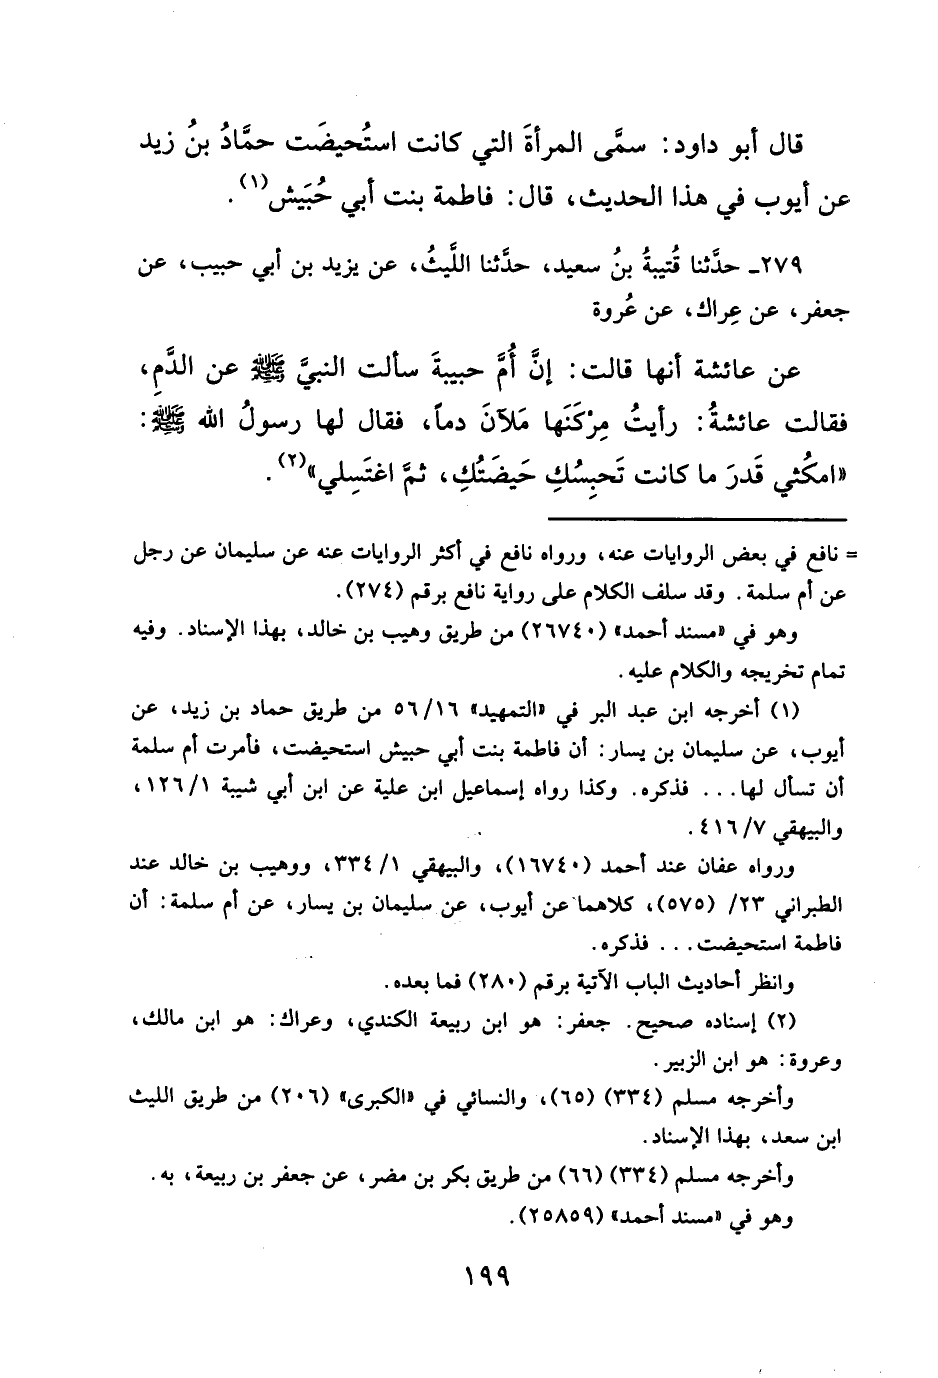 قال أبو داود: سمَّى المرأةَ التي كانت استُحيضَت حمَّادُ بنُ زيد
عن أيوب في هذا الحديث، قال: فاطمة بنت أبي حُبَيش(١).
٢٧٩ـ حدَّثنا قُتيبةُ بنُ سعيد، حدَّثنا اللَّيثُ، عن يزيد بن أبي حبيب، عن
جعفر، عن عِراك، عن عُروة
عن عائشة أنها قالت: إنَّ أُمَّ حبيبةَ سألت النبيَّ ﷺ عن الدَّمِ،
فقالت عائشةُ: رأيتُ مِرْكَنَها مَلآنَ دماً، فقال لها رسولُ الله ﷺ:
«امكُثي قَدرَ ما كانت تَحبِسُكِ حَيضَتُكِ، ثمَّ اغتَسِلي»(٢).
= نافع في بعض الروايات عنه، ورواه نافع في أكثر الروايات عنه عن سليمان عن رجل
عن أم سلمة. وقد سلف الكلام على رواية نافع برقم (٢٧٤).
وهو في «مسند أحمد» (٢٦٧٤٠) من طريق وهيب بن خالد، بهذا الإسناد. وفيه
تمام تخريجه والكلام عليه.
(١) أخرجه ابن عبد البر في «التمهيد» ١٦/ ٥٦ من طريق حماد بن زيد، عن
أيوب، عن سليمان بن يسار: أن فاطمة بنت أبي حبيش استحيضت، فأمرت أم سلمة
أن تسأل لها... فذكره. وكذا رواه إسماعيل ابن علية عن ابن أبي شيبة ١/ ١٢٦،
والبيهقي ٧/ ٤١٦.
ورواه عفان عند أحمد (١٦٧٤٠)، والبيهقي ١/ ٣٣٤، ووهيب بن خالد عند
الطبراني ٢٣/ (٥٧٥)، كلاهما عن أيوب، عن سليمان بن يسار، عن أم سلمة: أن
فاطمة استحيضت... فذكره.
وانظر أحاديث الباب الآتية برقم (٢٨٠) فما بعده.
(٢) إسناده صحيح. جعفر: هو ابن ربيعة الكندي، وعراك: هو ابن مالك،
وعروة: هو ابن الزبير.
وأخرجه مسلم (٣٣٤) (٦٥)، والنسائي في «الكبرى» (٢٠٦) من طريق الليث
ابن سعد، بهذا الإسناد.
وأخرجه مسلم (٣٣٤) (٦٦) من طريق بكر بن مضر، عن جعفر بن ربيعة، به.
وهو في «مسند أحمد» (٢٥٨٥٩).
١٩٩